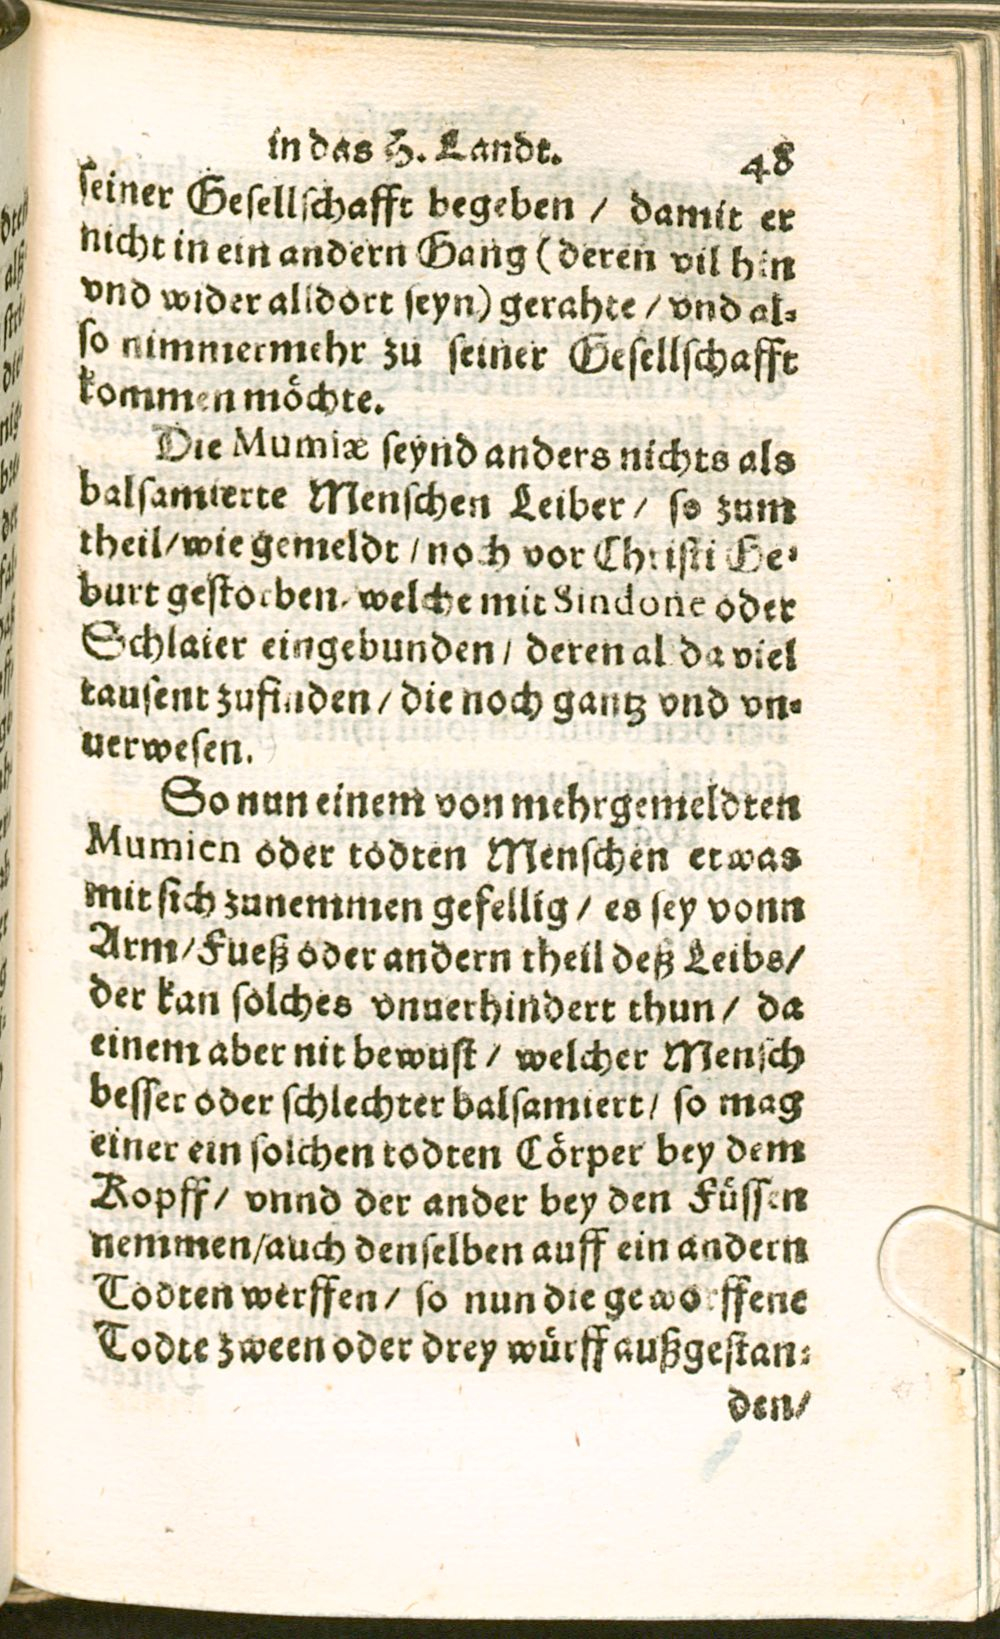 in das H. Landt. 48
seiner Gesellschafft begeben / damit er
nicht in ein andern Gang (deren vil hin
vnd wider alldort seyn) gerahte / vnd al⸗
so nimmermehr zu seiner Gesellschafft
kommen möchte.
Die Mumiæ seynd anders nichts als
balsamierte Menschen Leiber / so zum
theil / wie gemeldt / noch vor Christi Ge⸗
burt gestorben, welche mit Sindone oder
Schlaier eingebunden / deren al da viel
tausent zufinden / die noch gantz vnd vn⸗
uerwesen.
So nun einem von mehrgemeldten
Mumien oder todten Menschen etwas
mit sich zunemmen gefellig / es sey vonn
Arm / Fueß oder andern theil deß Leibs /
der kan solches vnuerhindert thun / da
einem aber nit bewust / welcher Mensch
besser oder schlechter balsamiert / so mag
einer ein solchen todten Cörper bey dem
Kopff / vnnd der ander bey den Füssen
nemmen / auch denselben auff ein andern
Todten werffen / so nun die geworffene
Todte zween oder drey würff außgestan⸗
den /